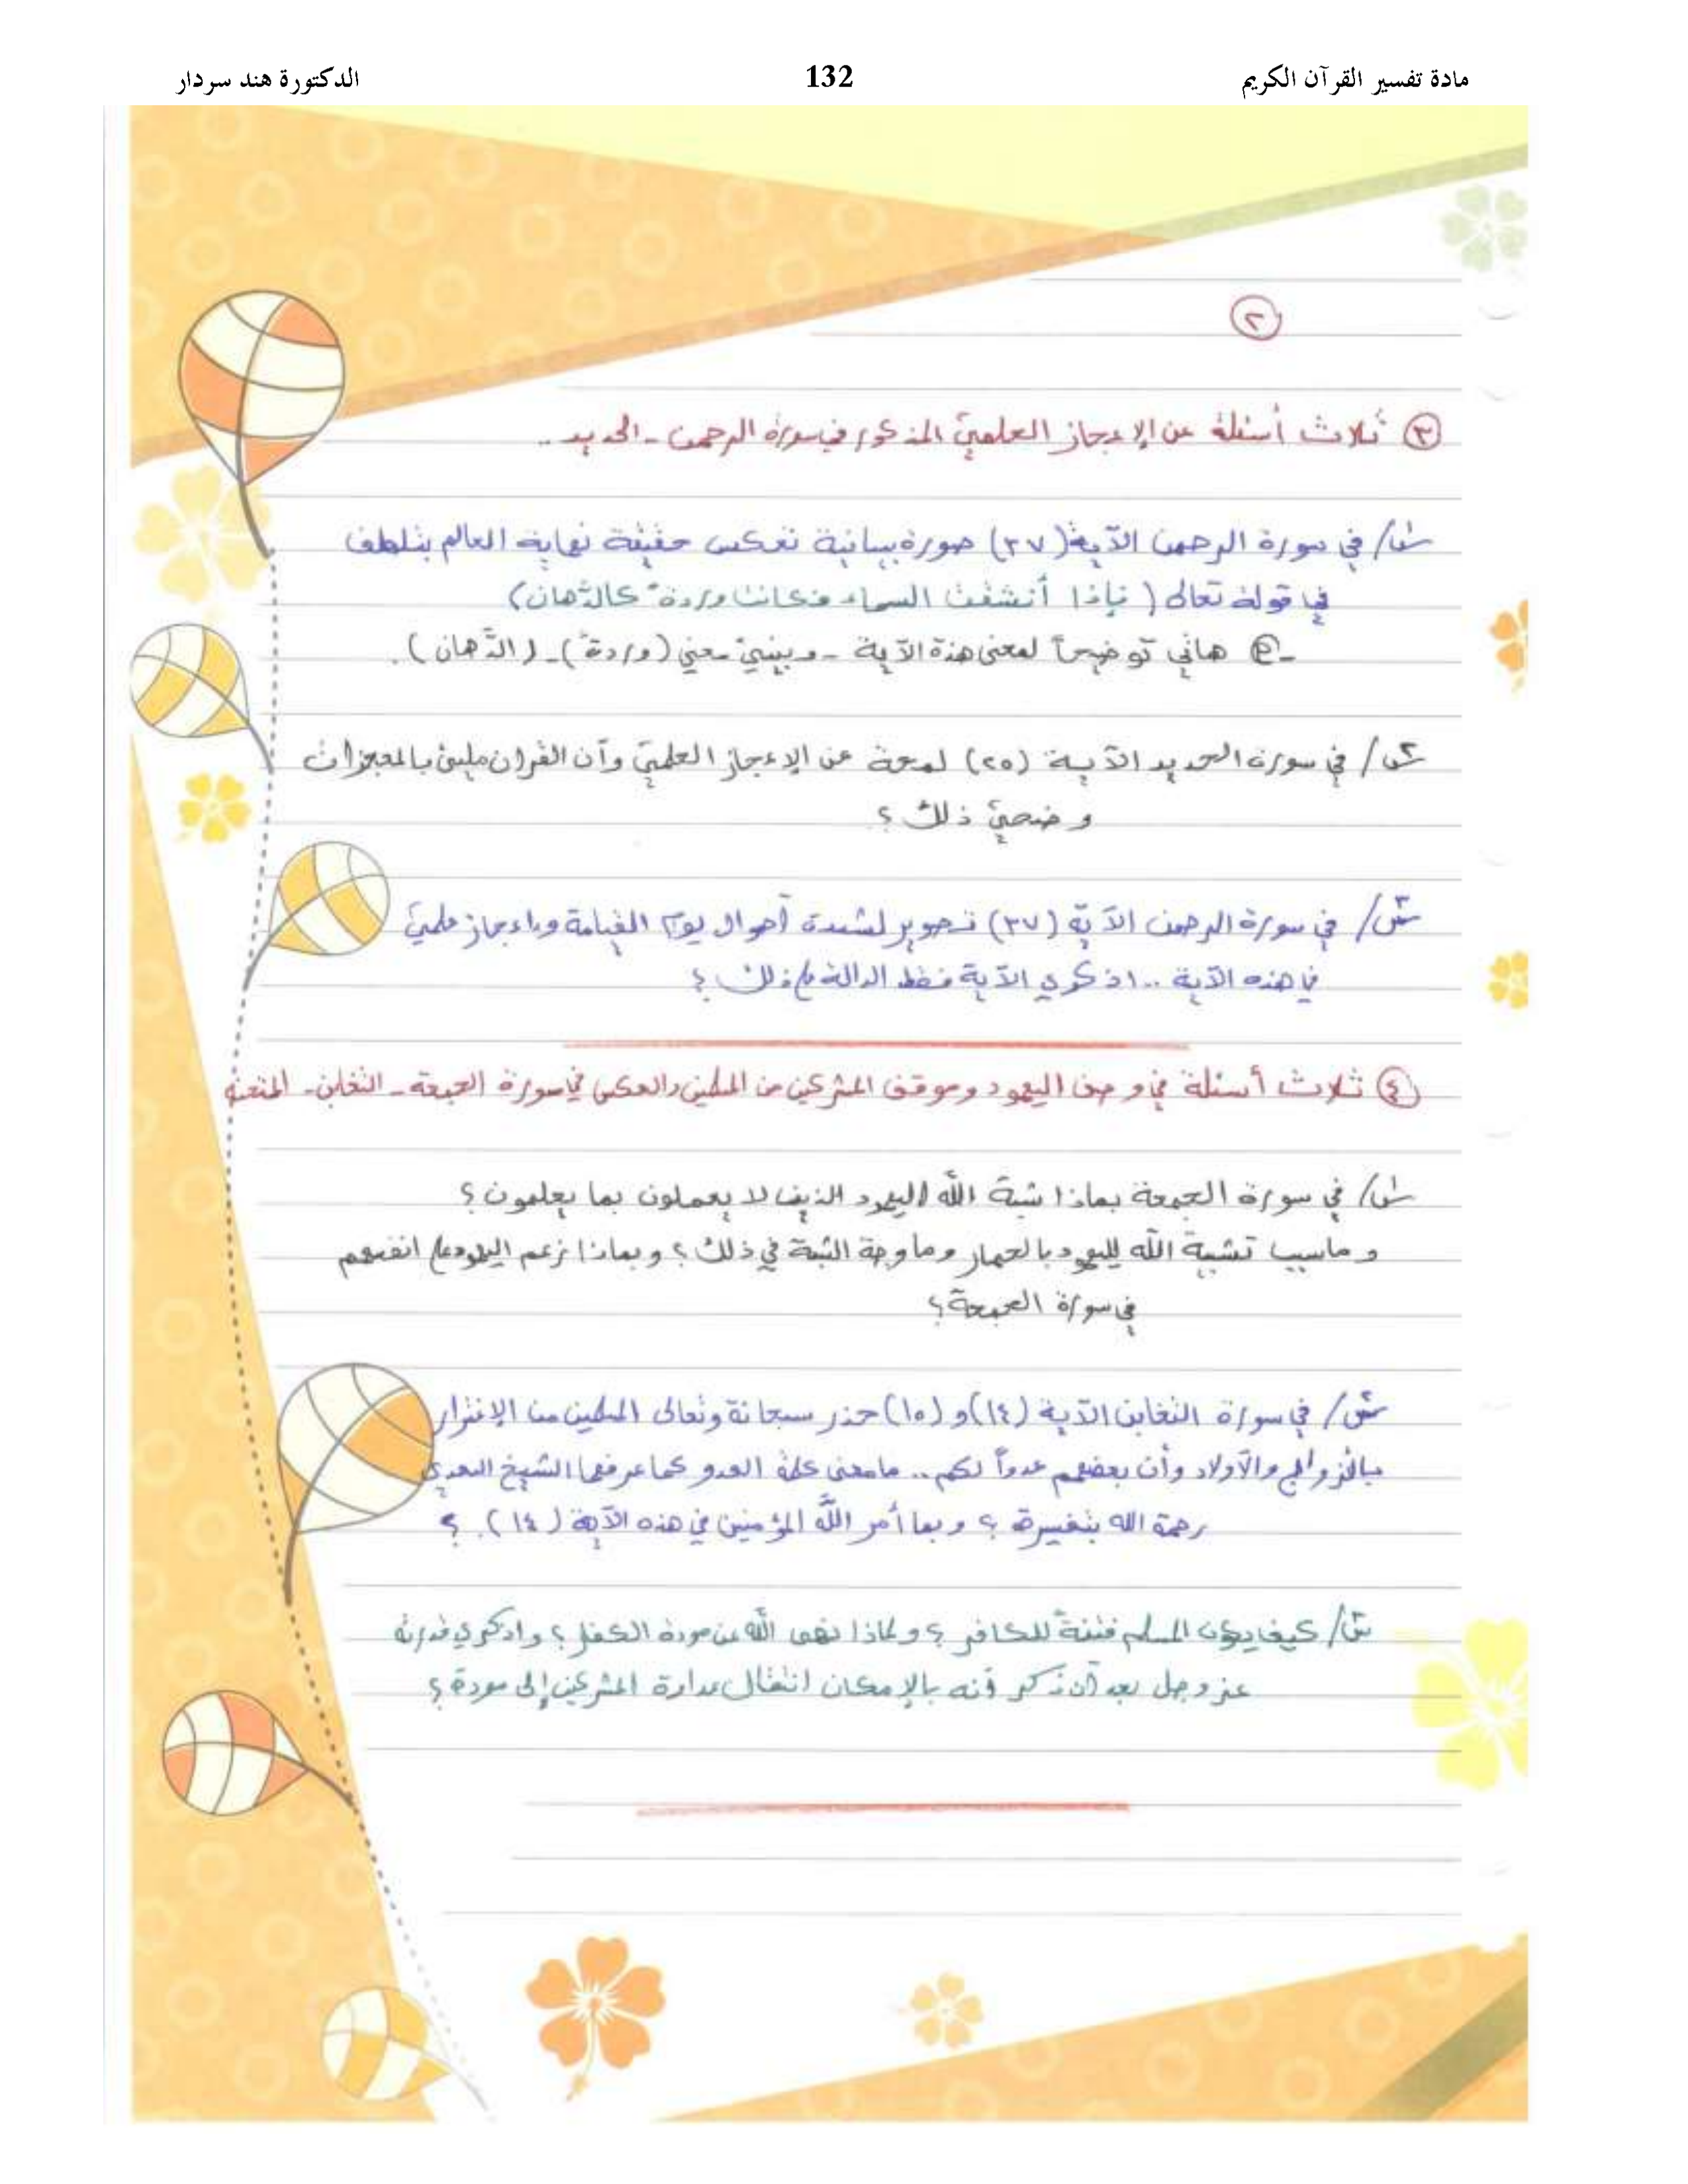 مادة تفسير القرآن الكريم 132 الدكتورة هند سردار
٢
٣ ثلاث أسئلة عن الإعجاز العلميّ المذكور في سورة الرحمن - الحديد ..
س١/ في سورة الرحمن الآية (٣٧) صورة بيانية تعكس حقيقة نهاية العالم بتلطف
في قوله تعالى ( فإذا أنشقت السماء فكانت وردةً كالدّهان)
- هاتي توضيحاً لمعنى هذة الآية - وبيني معني (وردةً) - (الدّهان).
س٢/ في سورة الحديد الآية (٢٥) لمحة عن الإعجاز العلميّ وأن القران مليئ بالمعجزات
وضحيّ ذلك ؟
س٣/ في سورة الرحمن الآية (٣٧) تصوير لشدة أهوال يوم القيامة وإعجاز علميّ
في هذه الآية .. اذكري الآية فقط الدالة على ذلك ؟
٤ ثلاث أسئلة في وصف اليهود وموقف المشركين من المسلمين والعكس في سورة الجمعة - التغابن - الممتحنة
س١/ في سورة الجمعة بماذا شبة الله اليهود الذين لا يعملون بما يعلمون ؟
وماسبب تشبية الله لليهود بالحمار وما وجة الشبة في ذلك ؟ وبماذا زعم اليهود على انفسهم
في سورة الجمعة ؟
س٢/ في سورة التغابن الآية (١٤) و (١٥) حذر سبحانة وتعالى المسلمين من الإغترار
بالأزواج والأولاد وأن بعضهم عدواً لكم .. مامعنى كلمة العدو كما عرفها الشيخ السعدي
رحمة الله بتفسيرة ؟ وبما أمر اللّه المؤمنين في هذه الآية (١٤). ؟
س٣/ كيف يكون المسلم فتنةً للكافر ؟ ولماذا نهى اللّه عن مودة الكفار ؟ واذكري قدرته
عز وجل بعد أن ذكر أنه بالإمكان انتقال عداوة المشركين إلى مودة ؟